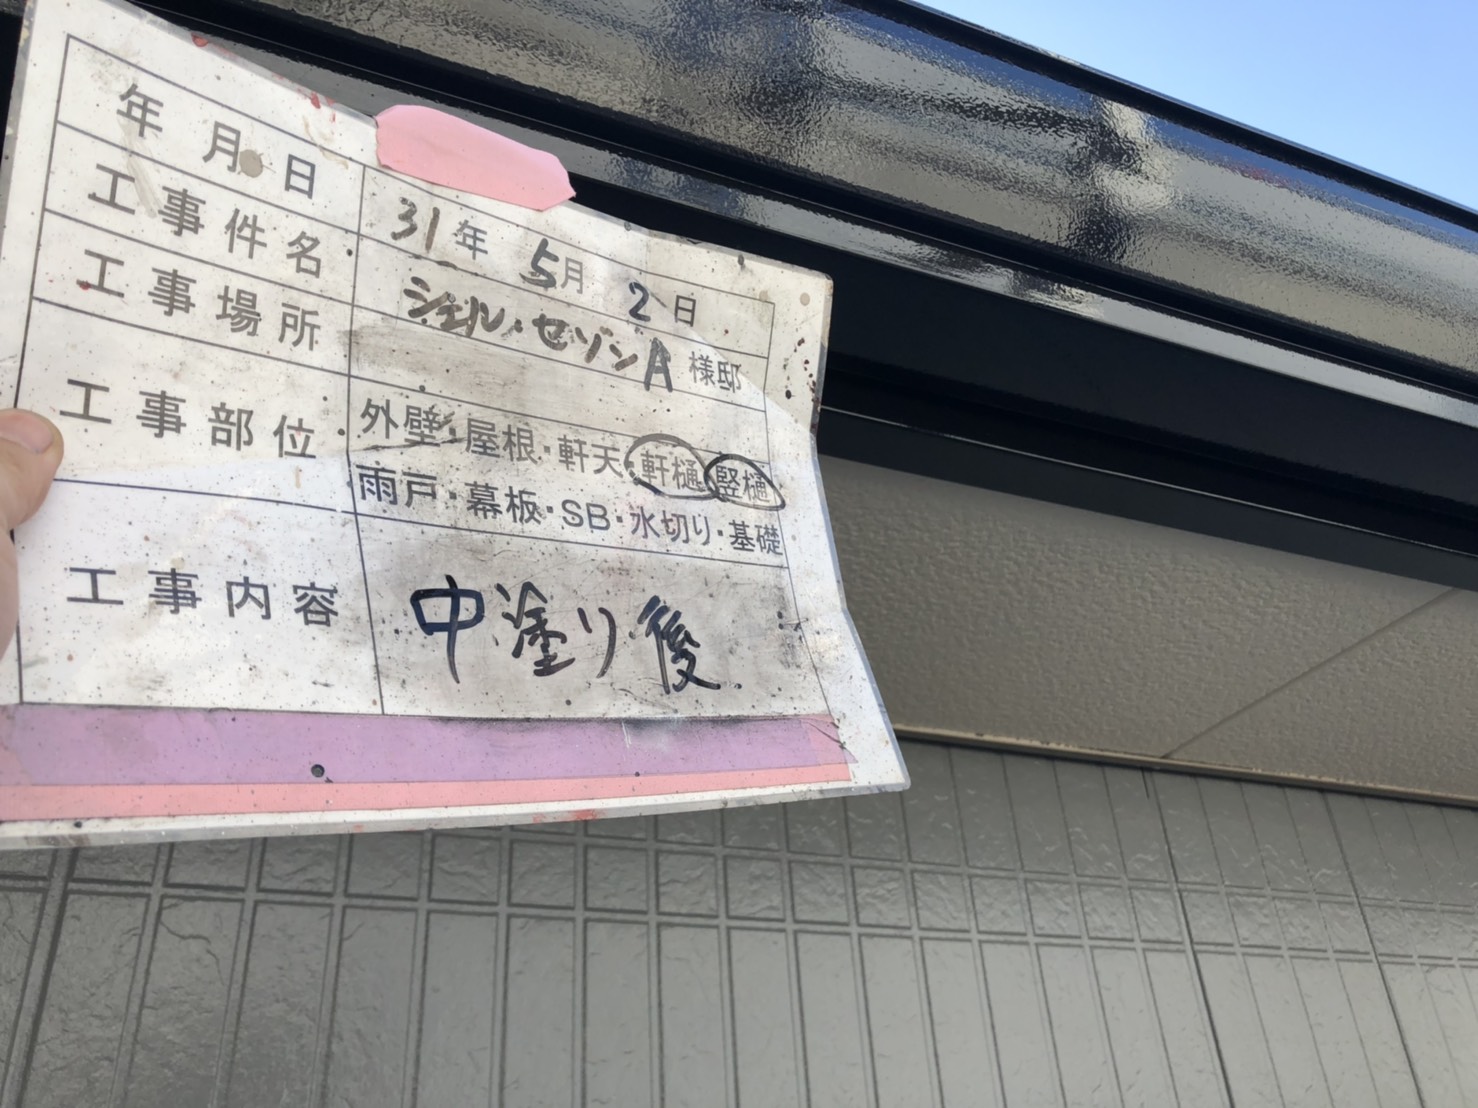 年月日 31年 5月 2日
工事件名 シェル・セゾンA 様邸
工事場所
工事部位 外壁・屋根・軒天・軒樋・竪樋
雨戸・幕板・SB・水切り・基礎
工事内容 中塗り後